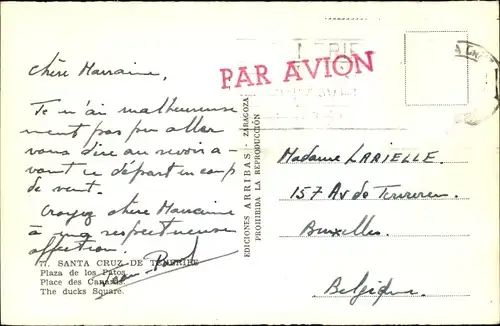 Chère Marraine,
Je n'ai malheureuse
ment pas pu aller
vous dire au revoir a-
vant ce départ en coup
de vent.
Croyez chère Marraine
à ma respectueuse
affection.
Jean-Paul
77. SANTA CRUZ DE TENERIFE
Plaza de los Patos
Place des Canards.
The ducks Square.
EDICIONES ARRIBAS - ZARAGOZA
PROHIBIDA LA REPRODUCCIÓN
PAR AVION
Madame LARIELLE.
157 Av de Tervueren.
Bruxelles.
Belgique.